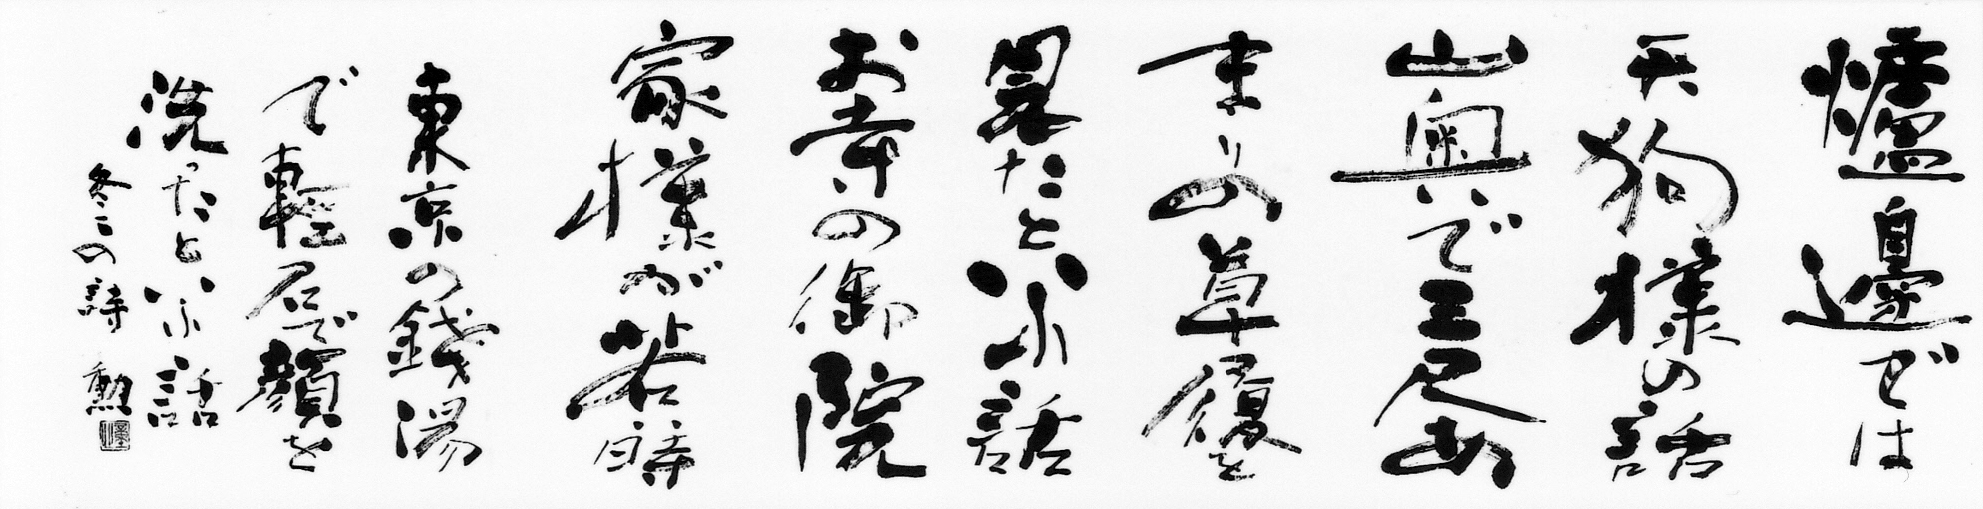 爐邊では
天狗様の話
山奥で三尺あ
まりの草履を
見たといふ話
お寺の御院
家様が若時
東京の銭湯
で軽石で顔を
洗ったといふ話
冬二の詩 勲